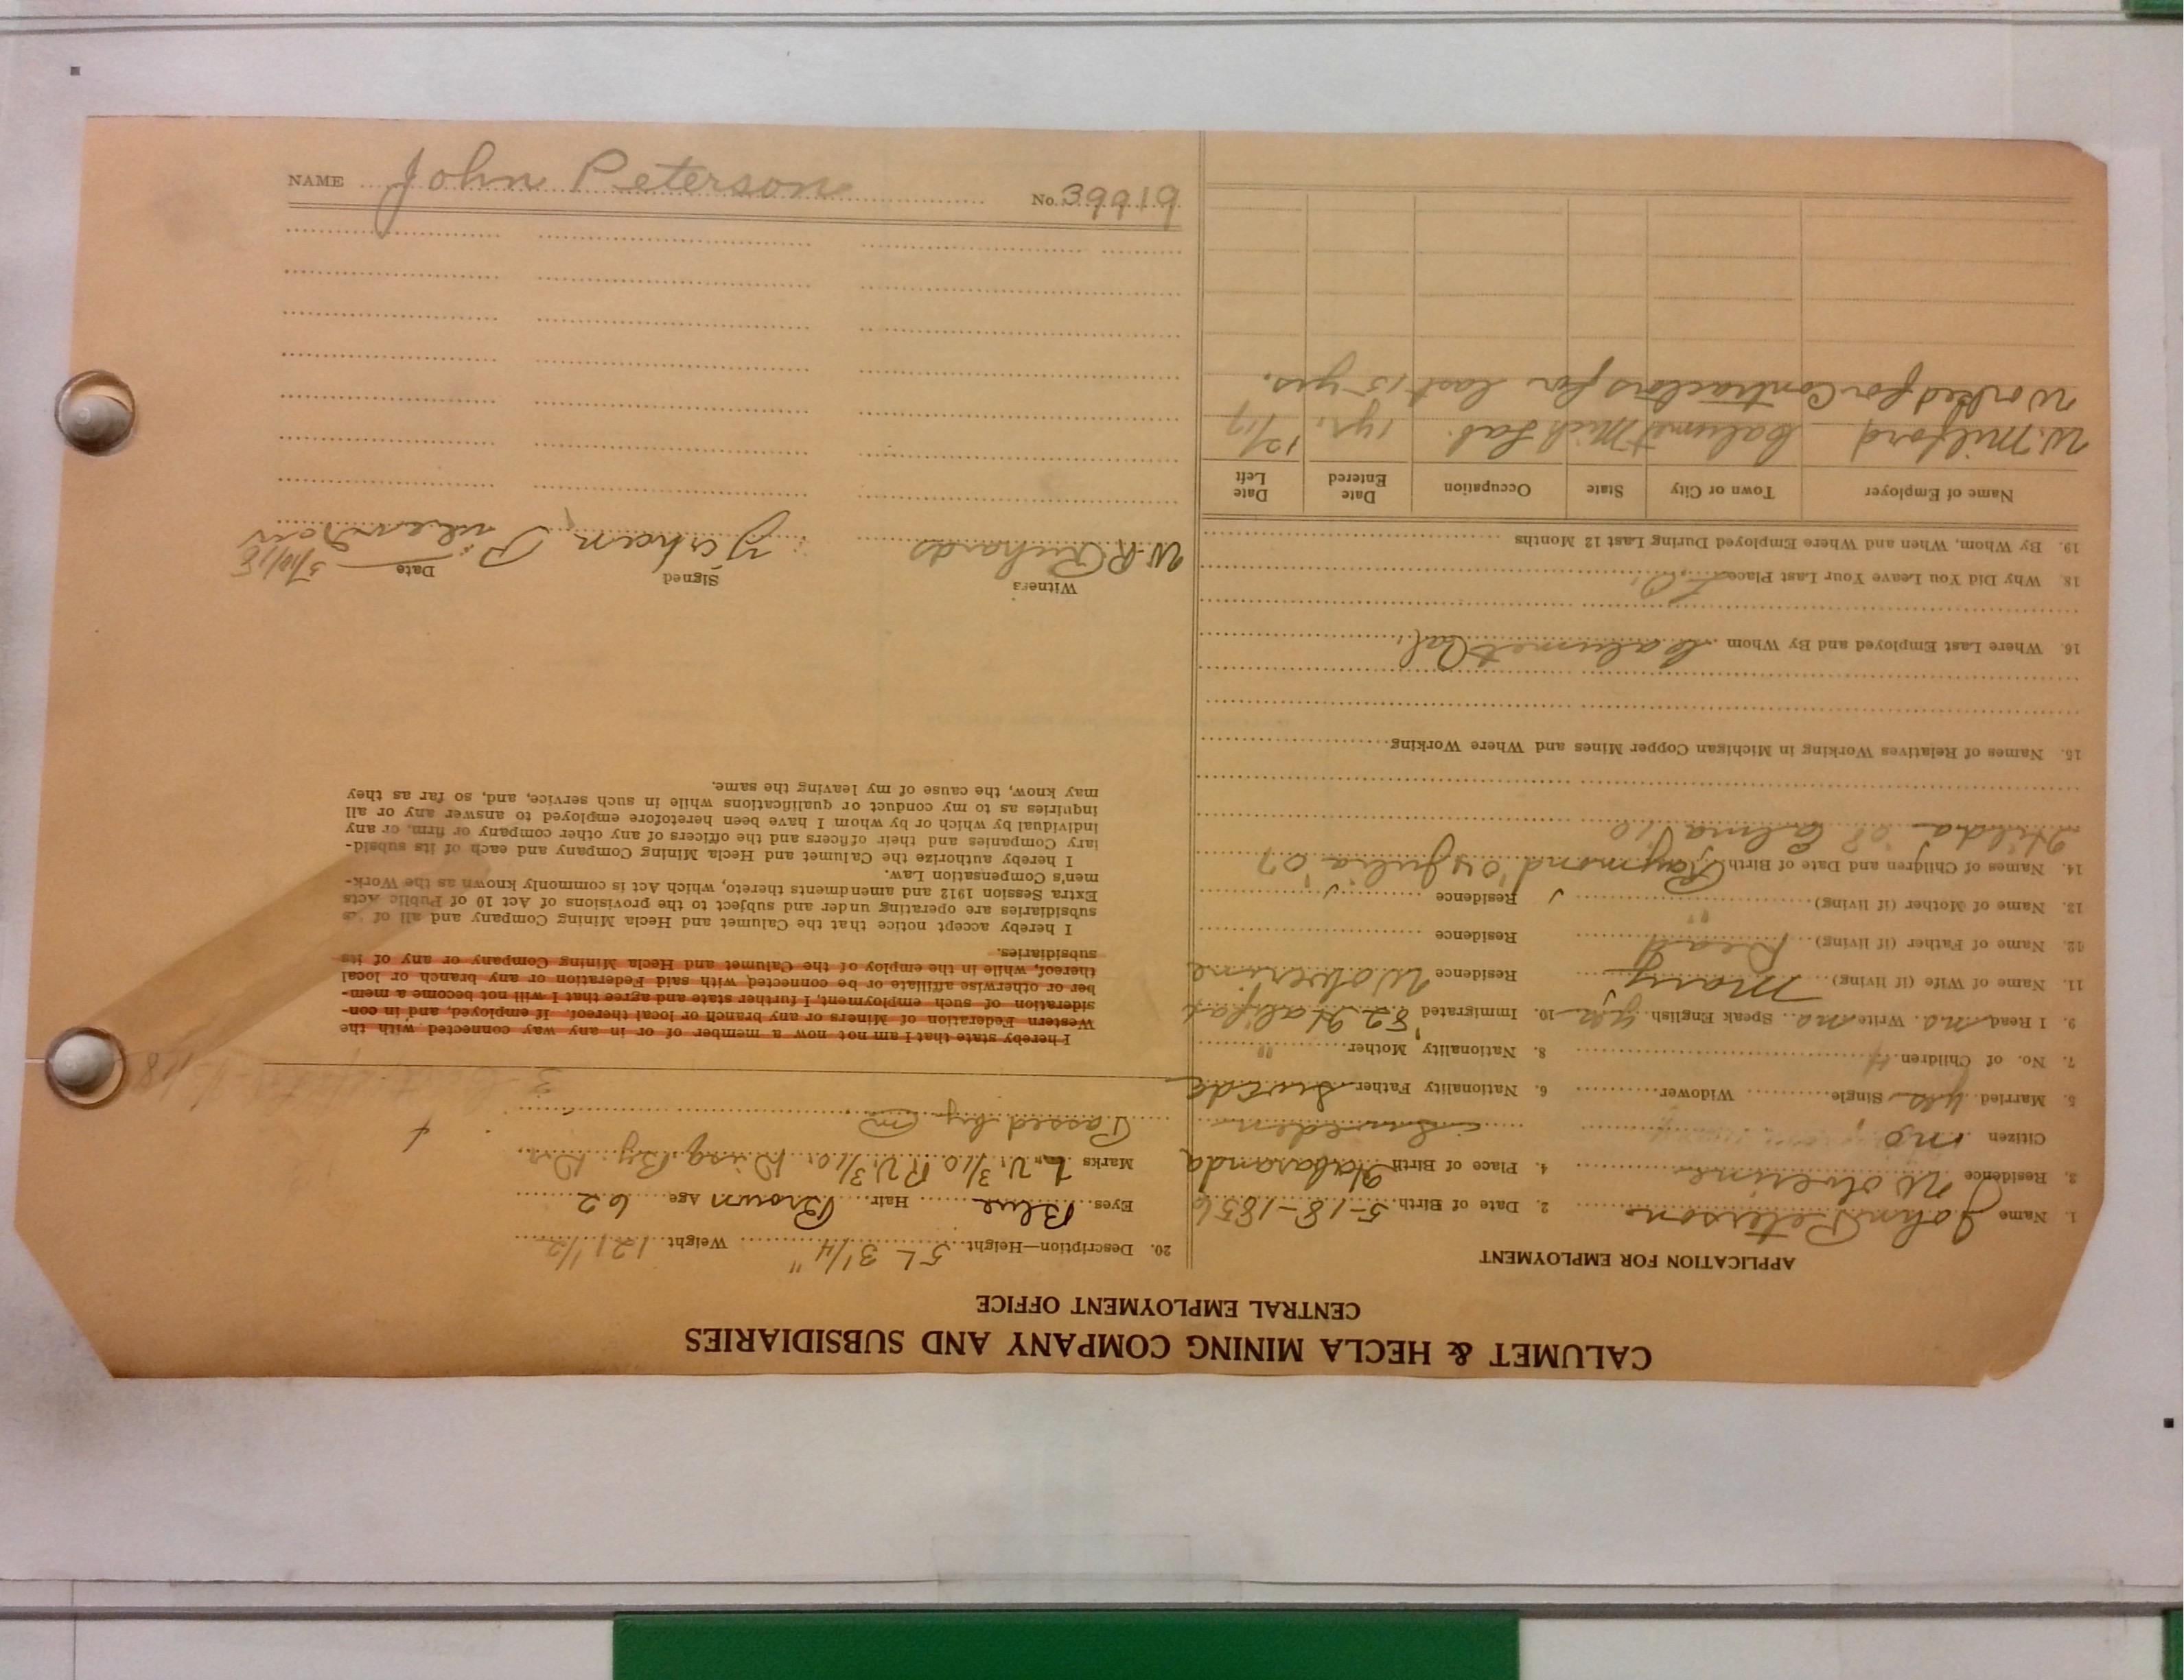 NAME John Peterson No. 39919
CALUMET & HECLA MINING COMPANY AND SUBSIDIARIES
CENTRAL EMPLOYMENT OFFICE
APPLICATION FOR EMPLOYMENT
1. Name John Peterson 2. Date of Birth 5-18-1856
3. Residence Wolverine 4. Place of Birth Habaranda
Citizen no Sweden
5. Married yes Single Widower 6. Nationality Father Swede
7. No. of Children 4 8. Nationality Mother "
9. I Read no Write no Speak English yes 10. Immigrated '82 Halifax
11. Name of Wife (if living) Mary Residence Wolverine
12. Name of Father (if living) Dead Residence
13. Name of Mother (if living) " Residence
14. Names of Children and Date of Birth Raymond '04 Julia '07
Hilda '08 Elma '10
15. Names of Relatives Working in Michigan Copper Mines and Where Working
16. Where Last Employed and By Whom Calumet
18. Why Did You Leave Your Last Place
19. By Whom, When and Where Employed During Last 12 Months
Name of Employer Town or City State Occupation Date Entered Date Left
W. Milford Calumet Mich Lab. 1 yr. 12/17
Worked for Contractors for last 15 yrs.
20. Description—Height 5 L 3 1/4" Weight 121 1/2
Eyes Blue Hair Brown Age 62
Marks L.V. 3/10 R.V. 3/10. Disq. By. Dr.
Passed by
I hereby state that I am not now a member of or in any way connected with the
Western Federation of Miners or any branch or local thereof. If employed, and in con-
sideration of such employment, I further state and agree that I will not become a mem-
ber or otherwise affiliate or be connected with said Federation or any branch or local
thereof, while in the employ of the Calumet and Hecla Mining Company or any of its
subsidiaries.
I hereby accept notice that the Calumet and Hecla Mining Company and all of its
subsidiaries are operating under and subject to the provisions of Act 10 of Public Acts
Extra Session 1912 and amendments thereto, which Act is commonly known as the Work-
men's Compensation Law.
I hereby authorize the Calumet and Hecla Mining Company and each of its subsid-
iary Companies and their officers and the officers of any other company or firm, or any
individual by which or by whom I have been heretofore employed to answer any or all
inquiries as to my conduct or qualifications while in such service, and, so far as they
may know, the cause of my leaving the same.
Witness Signed Date
W. R. Richards Johan 5/10/18